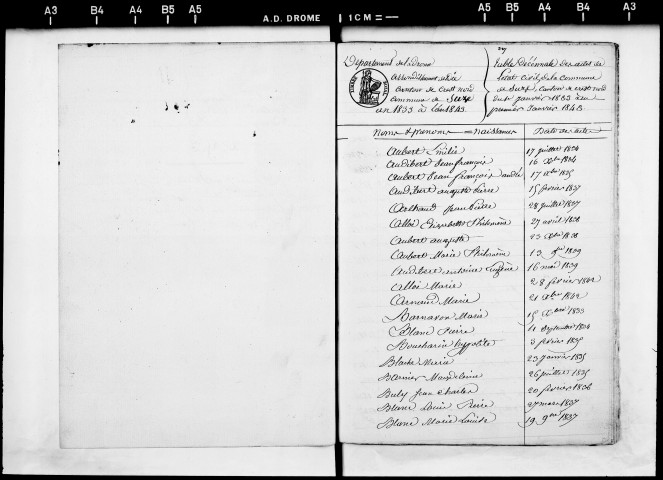 A3 B4 A4 B5 A5 A.D. DROME 1CM A5 B5 A4 B4 A3
Département de la drome
arrondissement de Die
canton de Crest nord
commune de Suze
an 1833 à l'an 1843
table Décennale des actes de
l'état civil de la commune
de Suze, canton de crest nord
du 1er janvier 1833 au
premier janvier 1843.
Noms & prénoms = naissances Date des actes
Aubert Emilie 17 juillet 1834
Audibert Jean françois 16 Xbre 1834
Aubert Jean françois andré 17 Xbre 1835
Audibert auguste pierre 15 février 1837
Jean pierre 28 juillet 1837
Alloi Elizabeth Philomène 27 avril 1838
Aubert auguste 23 Xbre 1838
Aubert Marie Philomène 13 9bre 1839
Audibert antoine Eugène 16 mai 1839
Alloi Marie 28 février 1842
Arnaud Marie 21 Xbre 1842
Barnavon Marie 15 1833
Blanc Pierre 11 Septembre 1834
Boucharin hyppolite 3 février 1835
Blache Marie 23 janvier 1835
Bernier Magdeleine 26 juillet 1835
Jean charles 20 février 1836
Blanc Louis Pierre 27 mars 1837
Blanc Marie Louise 19 9bre 1837